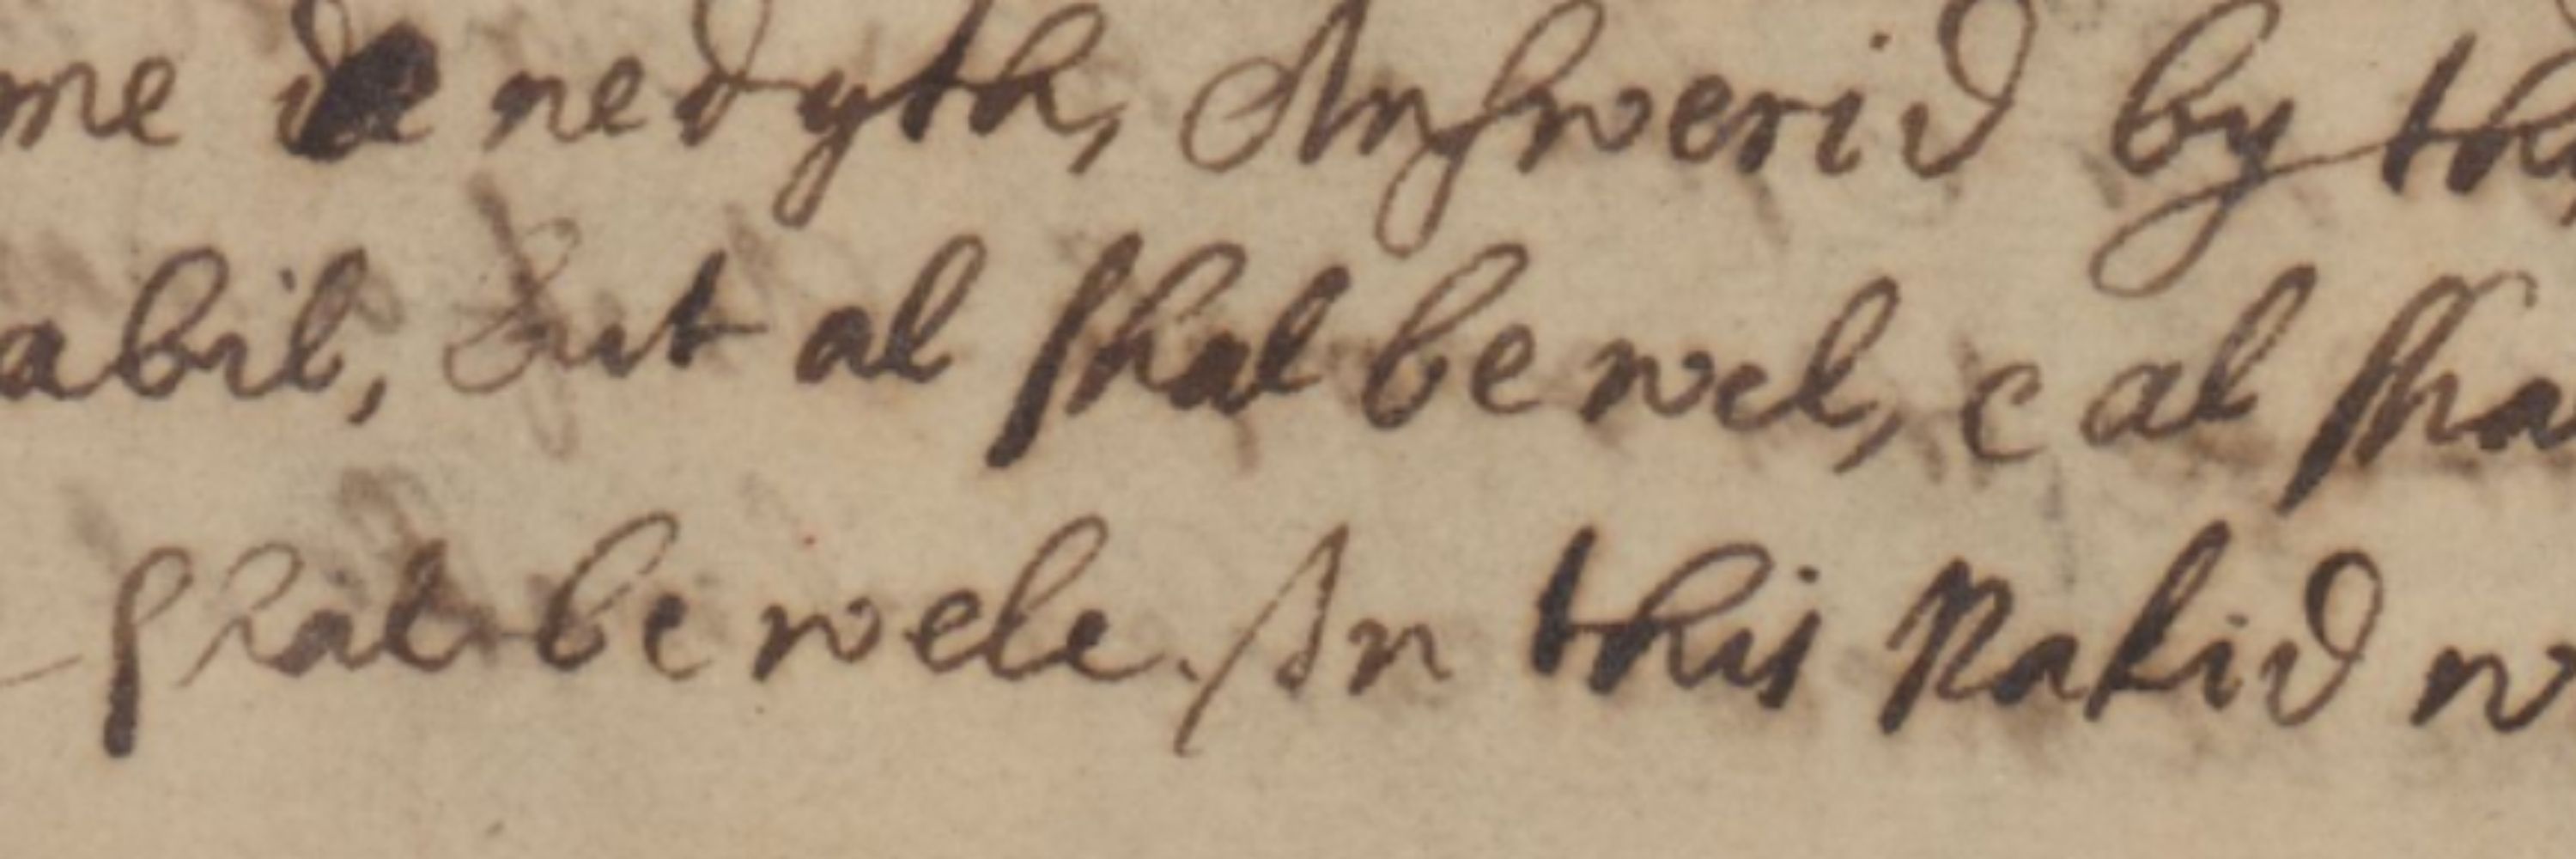 me nedyth, Answerid by th
abil, but al shal be wel, & al sha
shal be wele. In this Nakid w